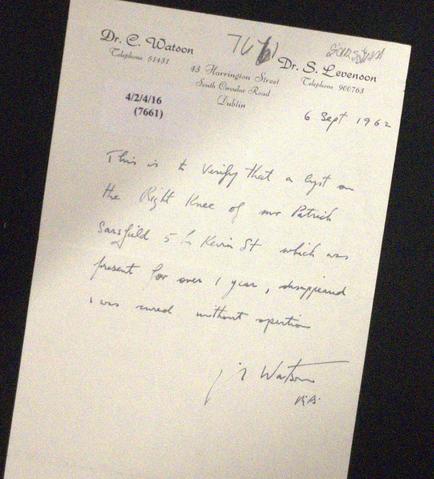 Dr. C. Watson
Telephone 51431
Dr. S. Levenson
Telephone 900763
43 Harrington Street
South Circular Road
Dublin
4/2/4/16
(7661)
6 Sept 1962
This is to verify that a cyst on
the Right Knee of Mr Patrick
Sarsfield 5 Kevin St which was
present for over 1 year, disappeared
& was cured without opertion
Watson